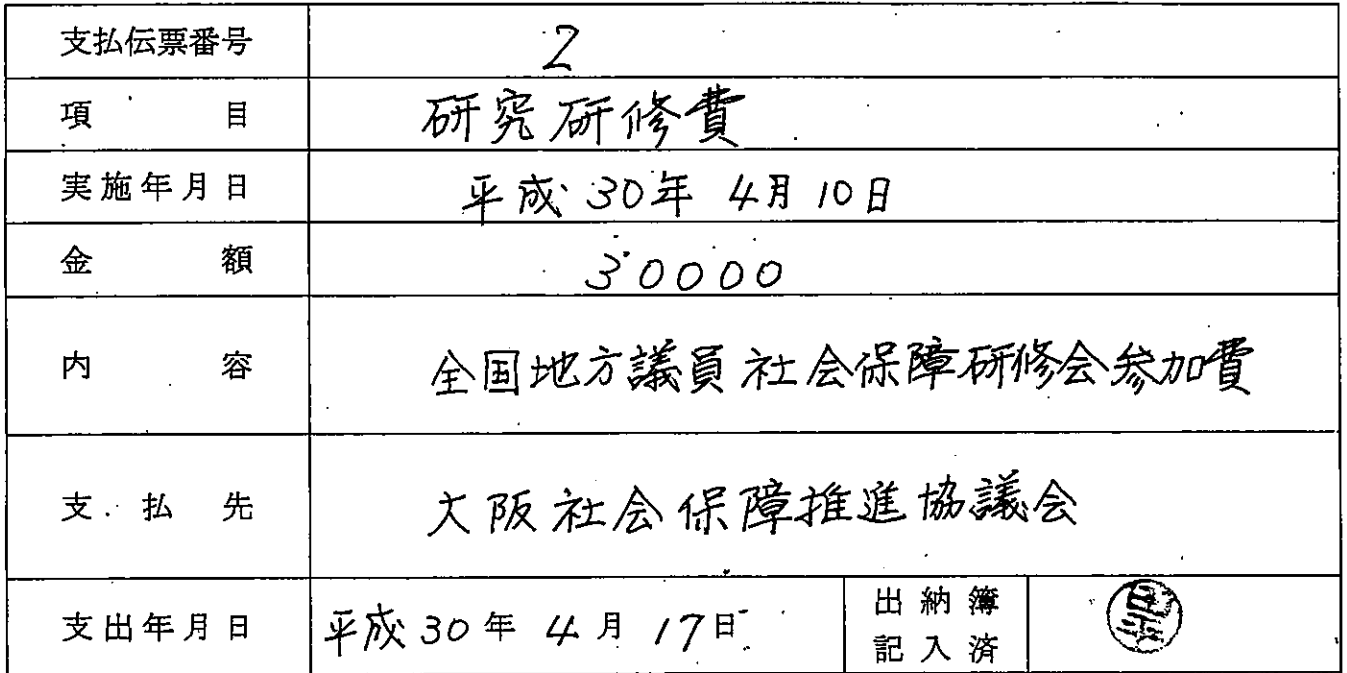 支払伝票番号 2
項目 研究研修費
実施年月日 平成30年 4月10日
金額 30000
内容 全国地方議員社会保障研修会参加費
支払先 大阪社会保障推進協議会
支出年月日 平成30年 4月 17日 出納簿
記入済